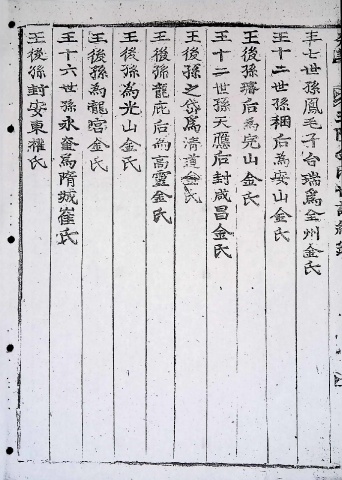 王七世孫鳳毛子台瑞爲全州金氏
王十二世孫稛后爲安山金氏
王後孫濬后爲完山金氏
王十二世孫天應后封咸昌金氏
王後孫之岱爲清道金氏
王後孫龍庇后爲高靈金氏
王後孫爲光山金氏
王後孫爲龍宮金氏
王十六世孫永奎爲隋城崔氏
王後孫封安東權氏